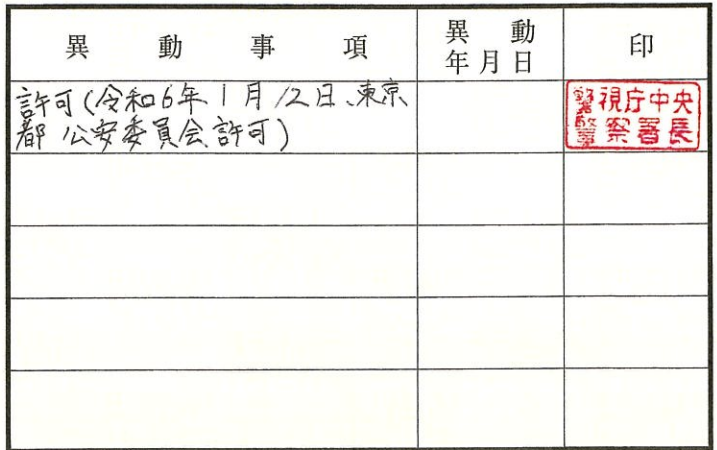 異動事項
異動
年月日
印
許可(令和6年1月12日、東京
都公安委員会許可)
警視庁中央
警察署長